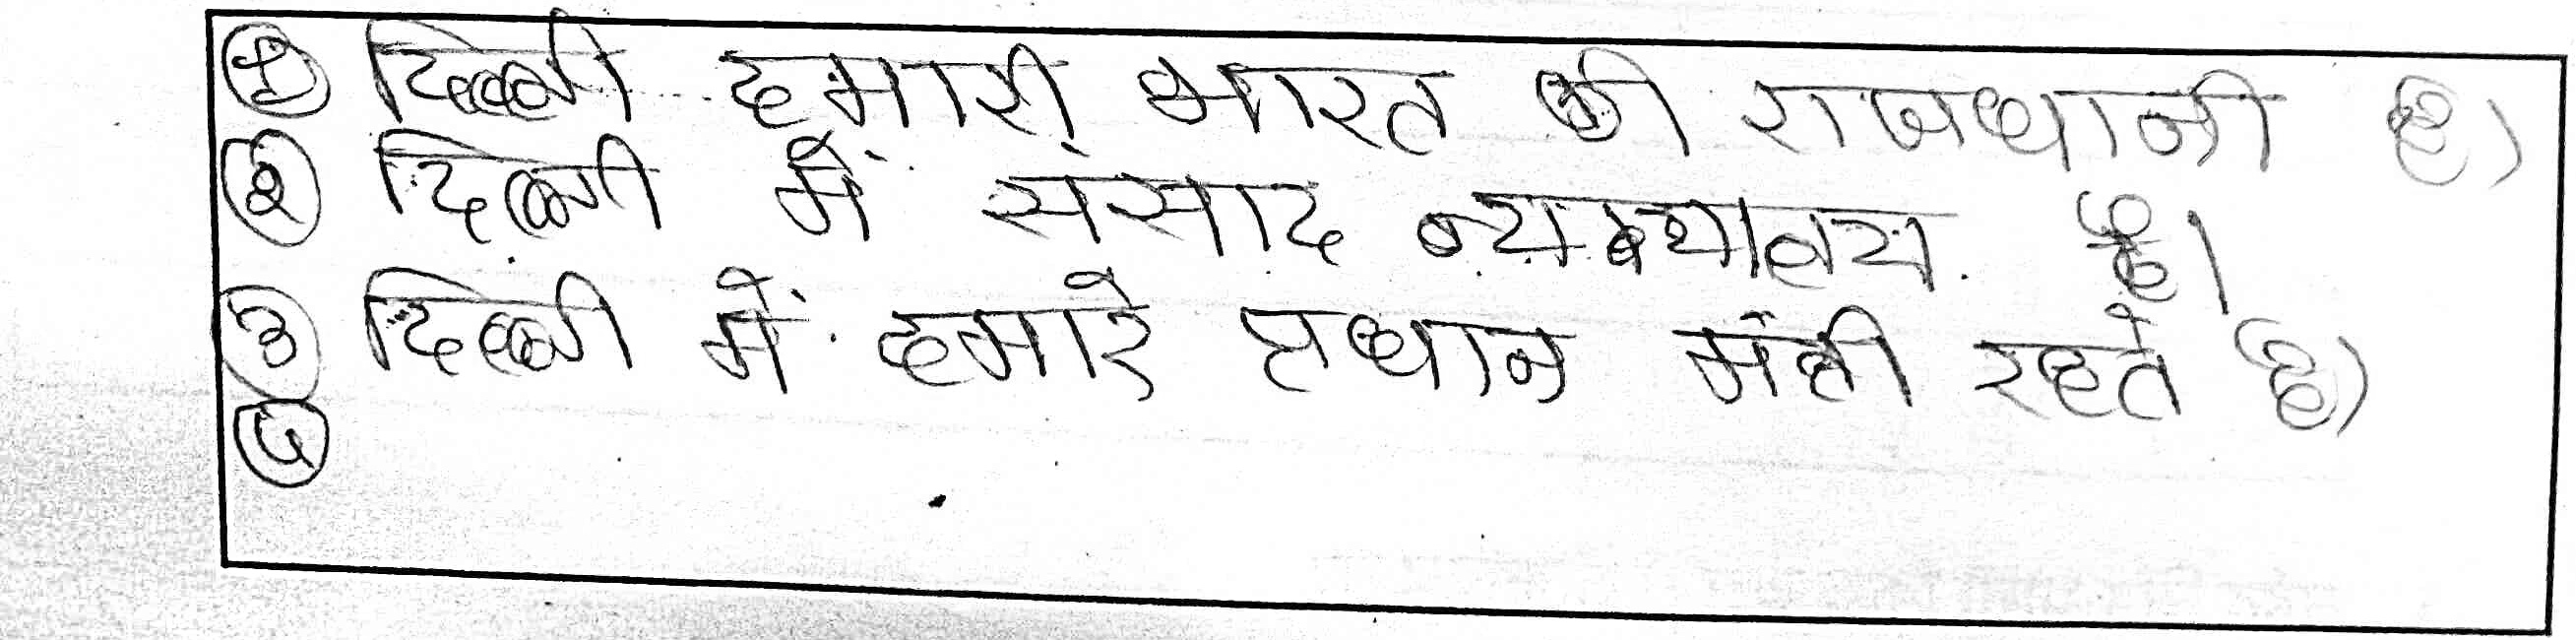 ① दिल्ली हमारी भारत की राजधानी है।
② दिल्ली में संसाद है।
③ दिल्ली में हमारे प्रधान मंत्री रहते है।